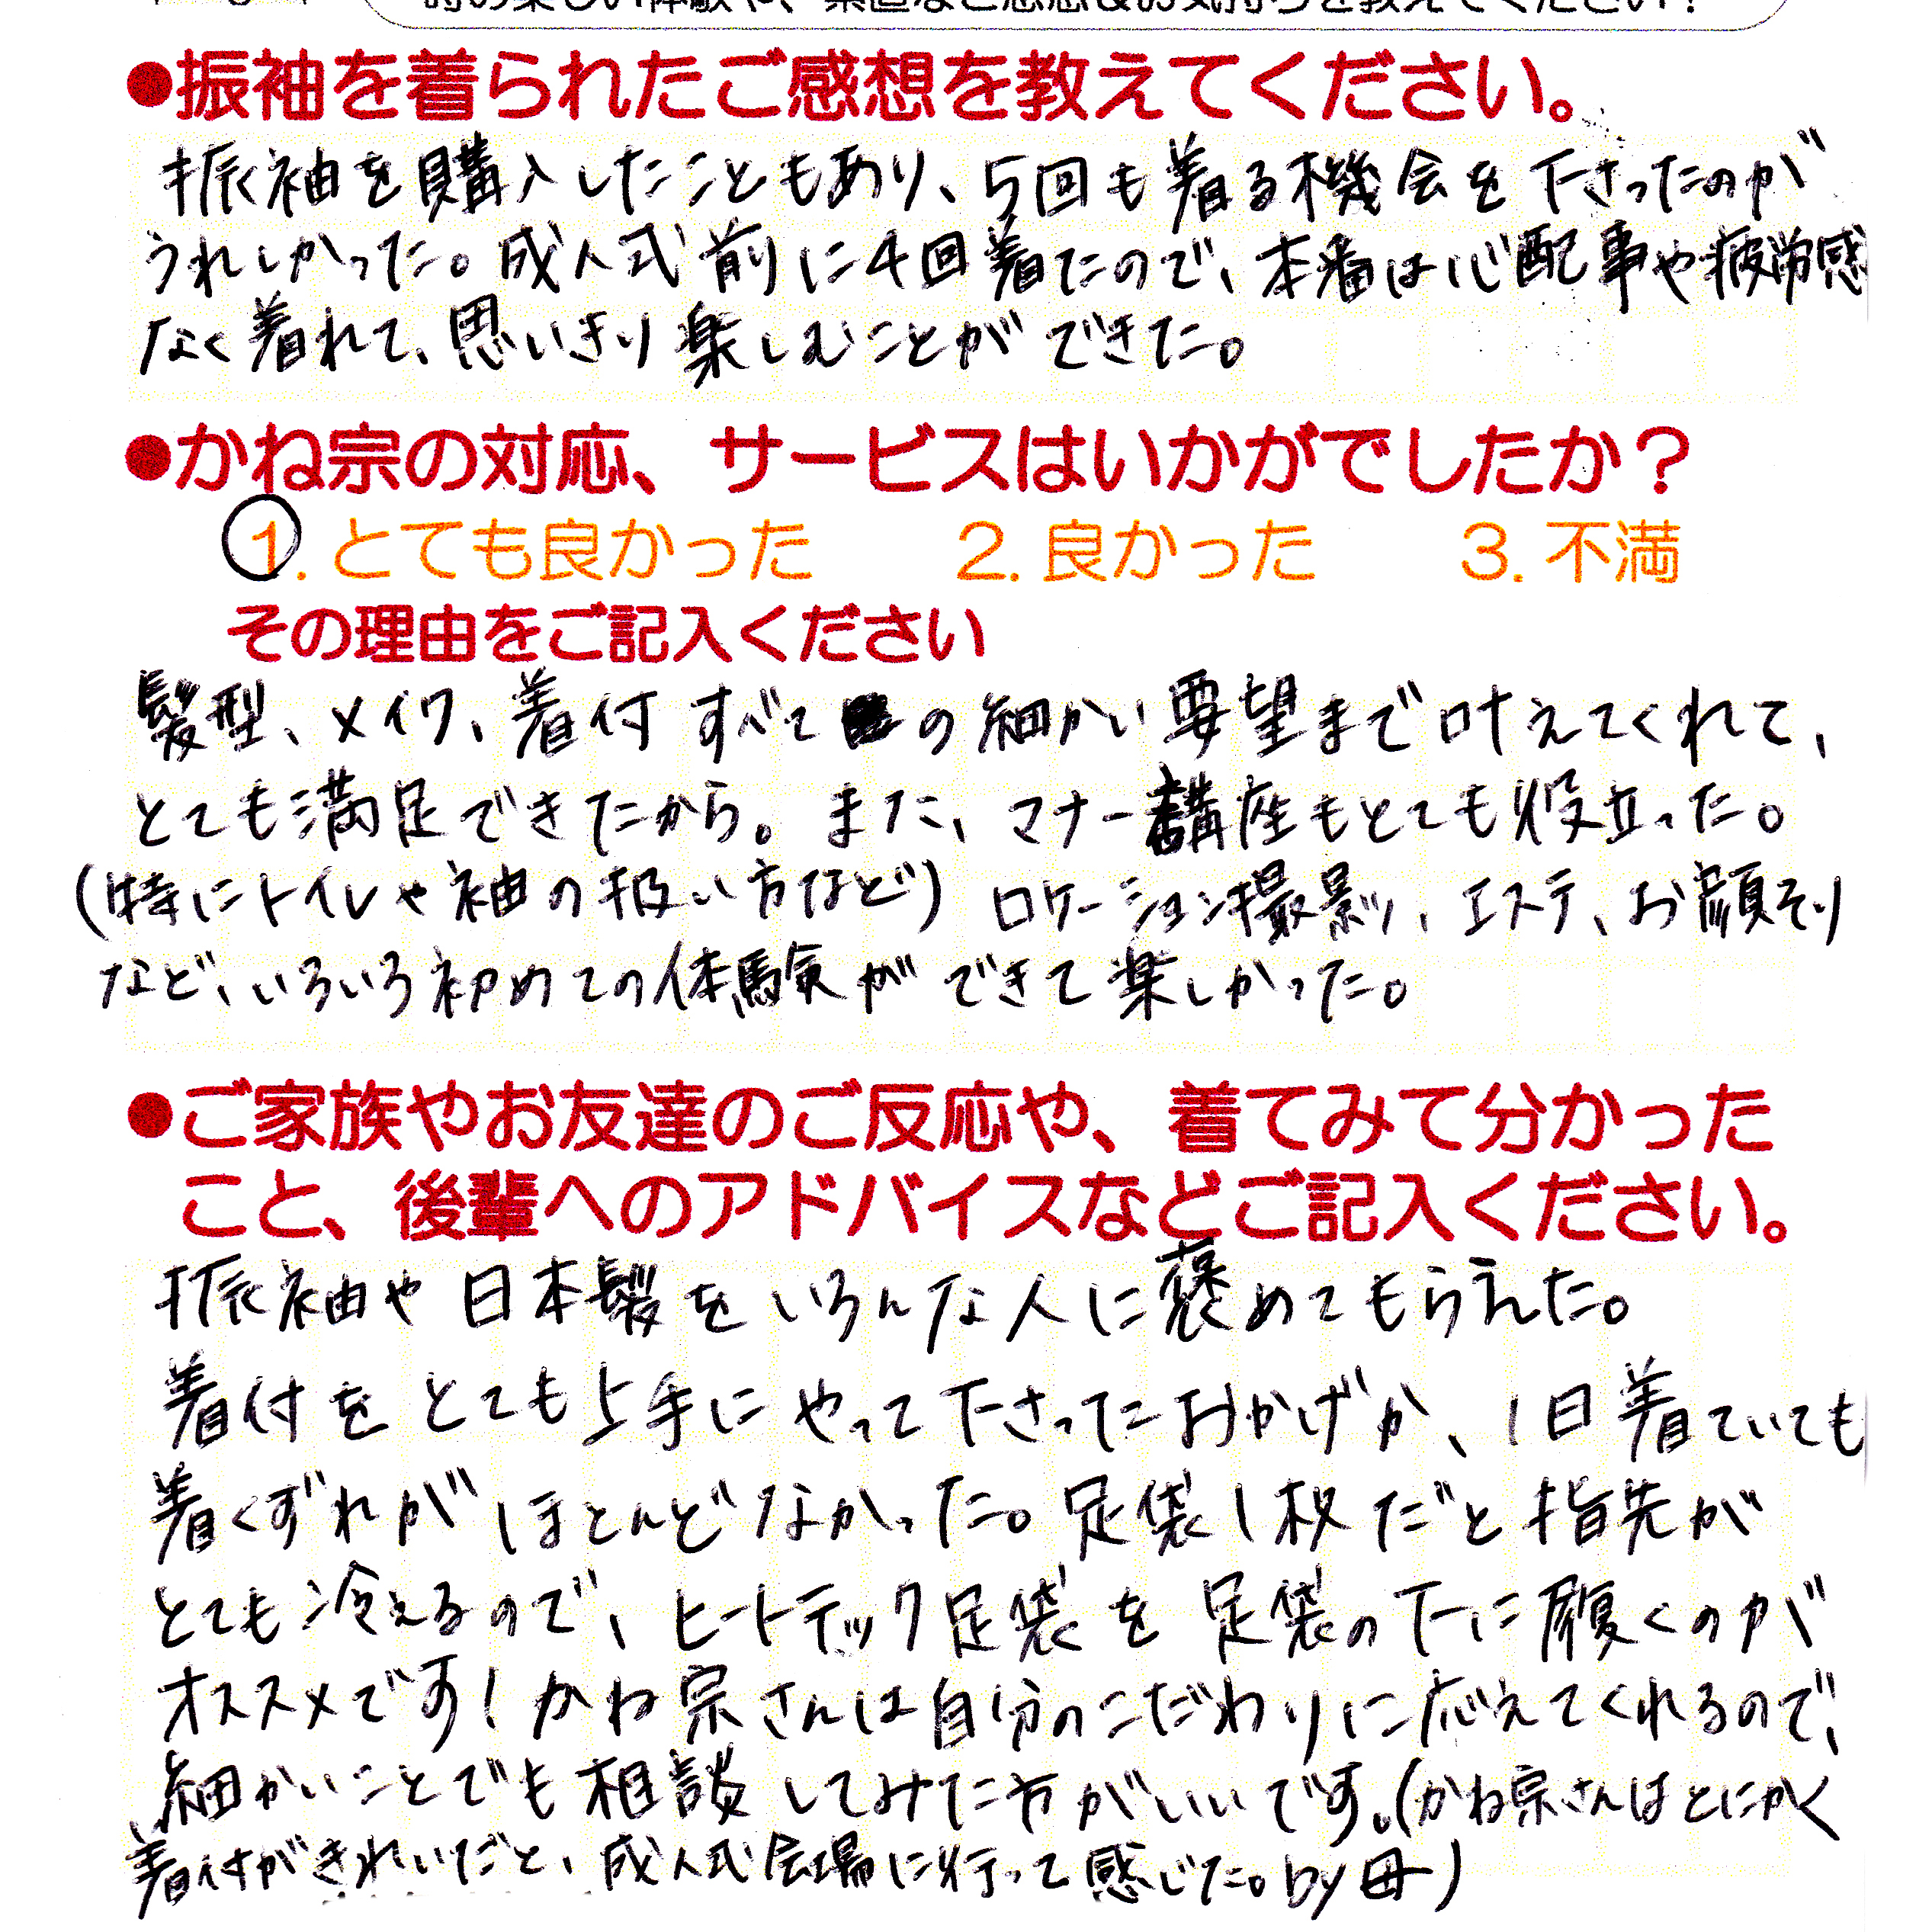 時の楽しい体験や、素直なご感想&お気持ちを教えてください！
●振袖を着られたご感想を教えてください。
振袖を購入したこともあり、5回も着る機会を下さったのが
うれしかった。成人式前に4回着たので、本番は心配事や疲労感
なく着れて、思いきり楽しむことができた。
●かね宗の対応、サービスはいかがでしたか？
1. とても良かった 2. 良かった 3. 不満
その理由をご記入ください
髪型、メイク、着付すべての細かい要望まで叶えてくれて、
とても満足できたから。また、マナー講座もとても役立った。
(特にトイレや袖の扱い方など) ロケーション撮影、エステ、お顔そり
など、いろいろ初めての体験ができて楽しかった。
●ご家族やお友達のご反応や、着てみて分かった
こと、後輩へのアドバイスなどご記入ください。
振袖や日本髪をいろんな人に褒めてもらえた。
着付をとても上手にやって下さったおかげか、1日着ていても
着くずれがほとんどなかった。足袋1枚だと指先が
とても冷えるので、ヒートテック足袋を足袋の下に履くのが
オススメです！かね宗さんは自分のこだわりに応えてくれるので、
細かいことでも相談してみた方がいいです。(かね宗さんはとにかく
着付がきれいだと、成人式会場に行って感じた。by母)